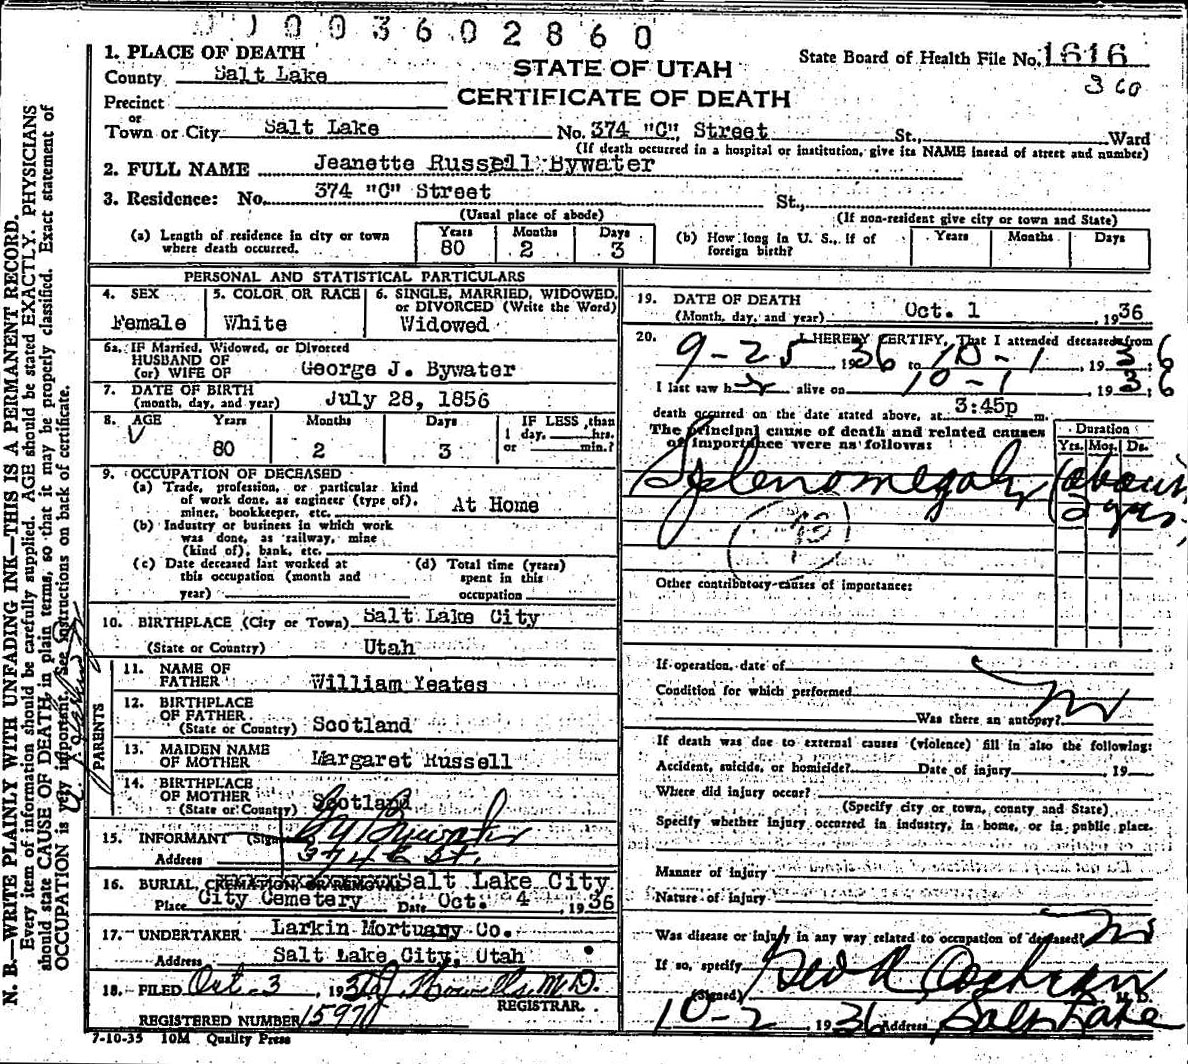 0003602860
1. PLACE OF DEATH
County Salt Lake
STATE OF UTAH
State Board of Health File No. 1616
360
Precinct
CERTIFICATE OF DEATH
or
Town or City Salt Lake No. 374 "C" Street St., Ward
(If death occurred in a hospital or institution, give its NAME instead of street and number)
2. FULL NAME Jeanette Russell Bywater
3. Residence: No. 374 "C" Street St.,
(Usual place of abode) (If non-resident give city or town and State)
(a) Length of residence in city or town where death occurred. Years 80 Months 2 Days 3
(b) How long in U. S., if of foreign birth? Years Months Days
PERSONAL AND STATISTICAL PARTICULARS
4. SEX Female
5. COLOR OR RACE White
6. SINGLE, MARRIED, WIDOWED, or DIVORCED (Write the Word) Widowed
6a. IF Married, Widowed, or Divorced
HUSBAND OF
(or) WIFE OF George J. Bywater
7. DATE OF BIRTH
(month, day, and year) July 28, 1856
8. AGE Years Months Days IF LESS than
80 2 3 1 day, hrs.
or min.?
9. OCCUPATION OF DECEASED
(a) Trade, profession, or particular kind
of work done, as engineer (type of),
miner, bookkeeper, etc. At Home
(b) Industry or business in which work
was done, as railway, mine
(kind of), bank, etc.
(c) Date deceased last worked at
this occupation (month and
year)
(d) Total time (years)
spent in this
occupation
10. BIRTHPLACE (City or Town) Salt Lake City
(State or Country) Utah
PARENTS
11. NAME OF
FATHER William Yeates
12. BIRTHPLACE
OF FATHER
(State or Country) Scotland
13. MAIDEN NAME
OF MOTHER Margaret Russell
14. BIRTHPLACE
OF MOTHER
(State or Country) Scotland
15. INFORMANT (Signed) Bywater
Address 374 C St.
16. BURIAL, CREMATION, OR REMOVAL Salt Lake City
Place City Cemetery Date Oct. 4, 1936
17. UNDERTAKER Larkin Mortuary Co.
Address Salt Lake City, Utah
18. FILED Oct-3, 1936 Howells M.D.
REGISTRAR.
REGISTERED NUMBER 1597
7-10-35 10M Quality Press
19. DATE OF DEATH
(Month, day, and year) Oct. 1 1936
20. I HEREBY CERTIFY, That I attended deceased from
9-25, 1936 to 10-1, 1936
I last saw her alive on 10-1, 1936
death occurred on the date stated above, at 3:45p m.
The principal cause of death and related causes
of importance were as follows:
Duration
Yrs. Mos. Ds.
Splenomegaly (about
2 yrs.
Other contributory causes of importance:
If operation, date of
Condition for which performed
Was there an autopsy? no
If death was due to external causes (violence) fill in also the following:
Accident, suicide, or homicide? Date of injury 19
Where did injury occur?
(Specify city or town, county and State)
Specify whether injury occurred in industry, in home, or in public place.
Manner of injury
Nature of injury
Was disease or injury in any way related to occupation of deceased? no
If so, specify
(Signed) Geo R Cochran M. D.
10-2, 1936 Address Salt Lake
N. B.—WRITE PLAINLY WITH UNFADING INK—THIS IS A PERMANENT RECORD.
Every item of information should be carefully supplied. AGE should be stated EXACTLY. PHYSICIANS
should state CAUSE OF DEATH in plain terms, so that it may be properly classified. Exact statement of
OCCUPATION is very important. See instructions on back of certificate.